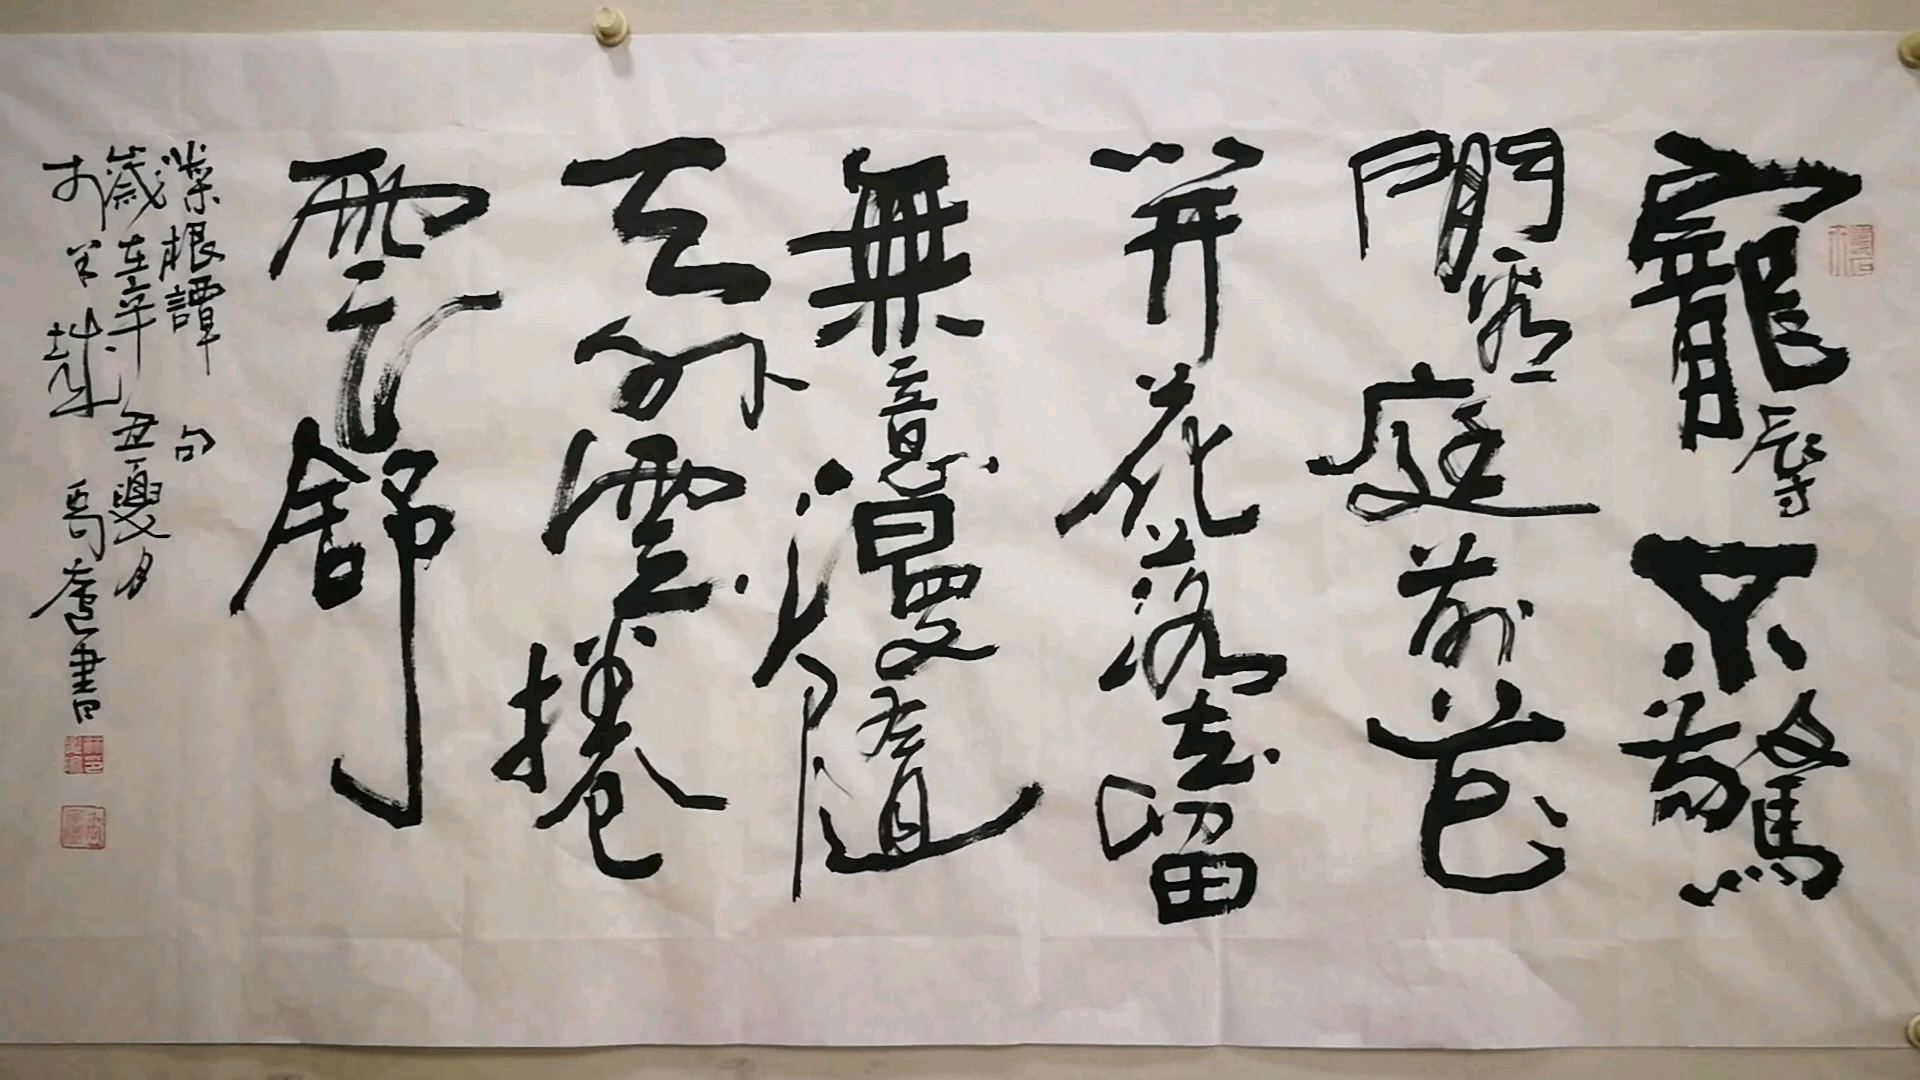 寵辱不驚
閒看庭前花
开花落去留
無意漫隨
天外雲捲
雲舒
菜根譚句
歲在辛丑夏月
於羊城 書